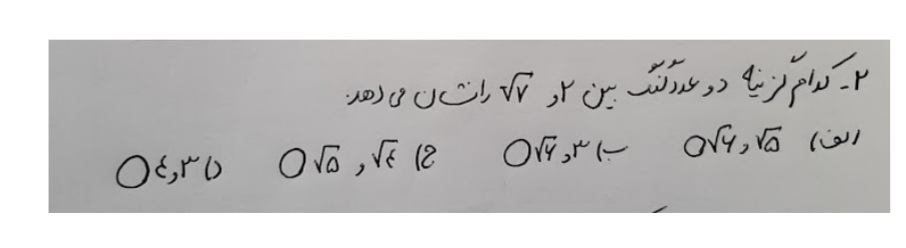 ۲- کدام گزینه دو عدد گنگ بین ۲ و √۷ را نشان می دهد.
الف) √۵ و √۶ ○ ب) ۳ و √۶ ○ ج) √٤ و √۵ ○ د) ۳ و ٤ ○